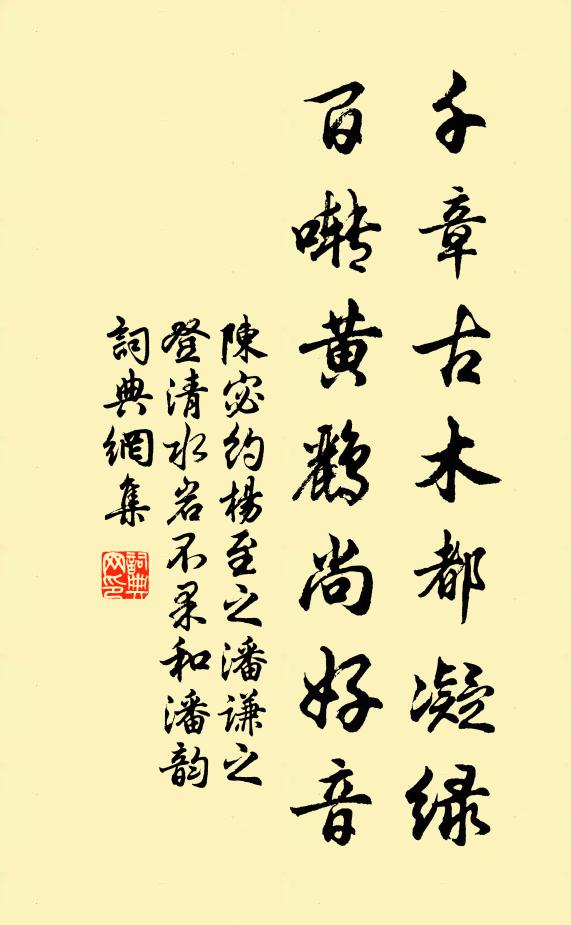 千章古木都凝緑
百囀黄鸝尚好音
陳宓約楊至之潘謙之
登清水岩不果和潘韵
詞典網集
詞典
网印